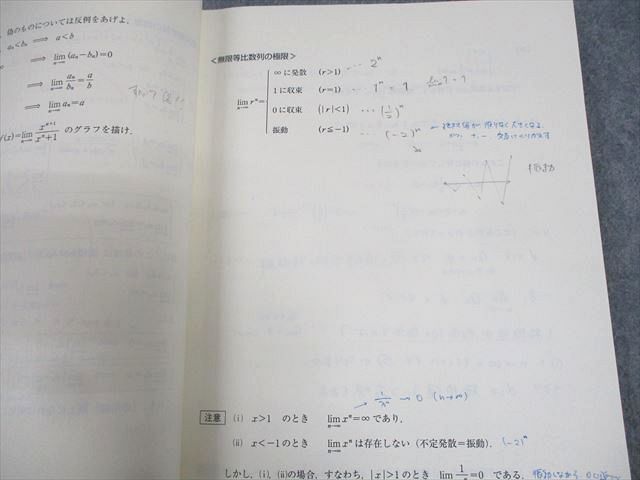 偽のものについては反例をあげよ.
aₙ<bₙ ⟹ a<b
⟹ lim_{n→∞}(aₙ−bₙ)=0
⟹ lim_{n→∞} aₙ/bₙ = a/b
⟹ lim_{n→∞} aₙ=a
f(x)=lim_{n→∞} x^{n+1}/(xⁿ+1) のグラフを描け.
<無限等比数列の極限>
lim_{n→∞} rⁿ=
∞に発散 (r>1) … 2ⁿ
1に収束 (r=1) … 1ⁿ = 1
0に収束 (|r|<1) … (1/2)ⁿ
振動 (r≦−1) … (−2)ⁿ
振動
1/xⁿ → 0 (n→∞)
注意 (i) x>1 のとき lim_{n→∞} xⁿ=∞であり,
(ii) x<−1のとき lim_{n→∞} xⁿは存在しない(不定発散=振動). (−2)ⁿ
しかし, (i), (ii)の場合, すなわち, |x|>1のとき lim 1/xⁿ=0 である.